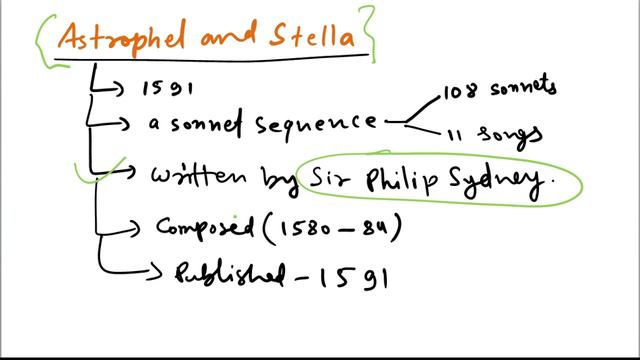 {Astrophel and Stella}
→ 1591
→ a sonnet sequence
108 sonnets
11 songs
→ written by Sir Philip Sydney.
→ Composed (1580-84)
→ Published - 1591